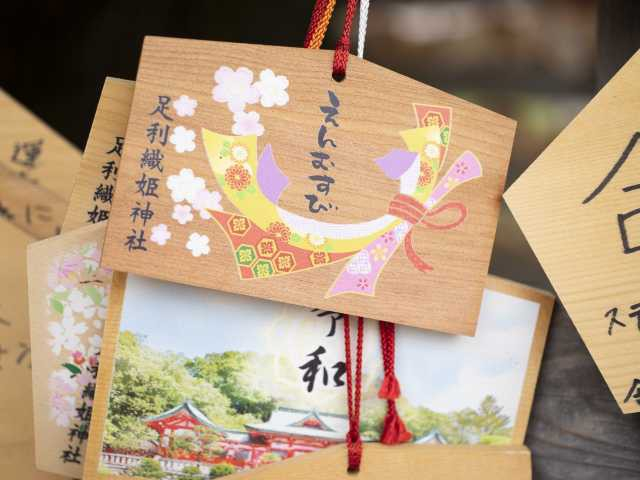 えんむすび
足利織姫神社
足利織姫
令和
足利織姫神社
合
ステ